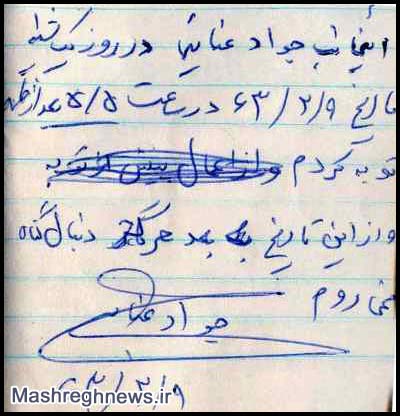 اینجانب جواد عنایتی در روز یکشنبه
تاریخ ۶۳/۲/۹ در ساعت ۵/۵ بعدازظهر
توبه کردم
و از این تاریخ به بعد هرگز دنبال گناه
نمی روم
جواد عنایتی
۶۳/۲/۹
Mashreghnews.ir